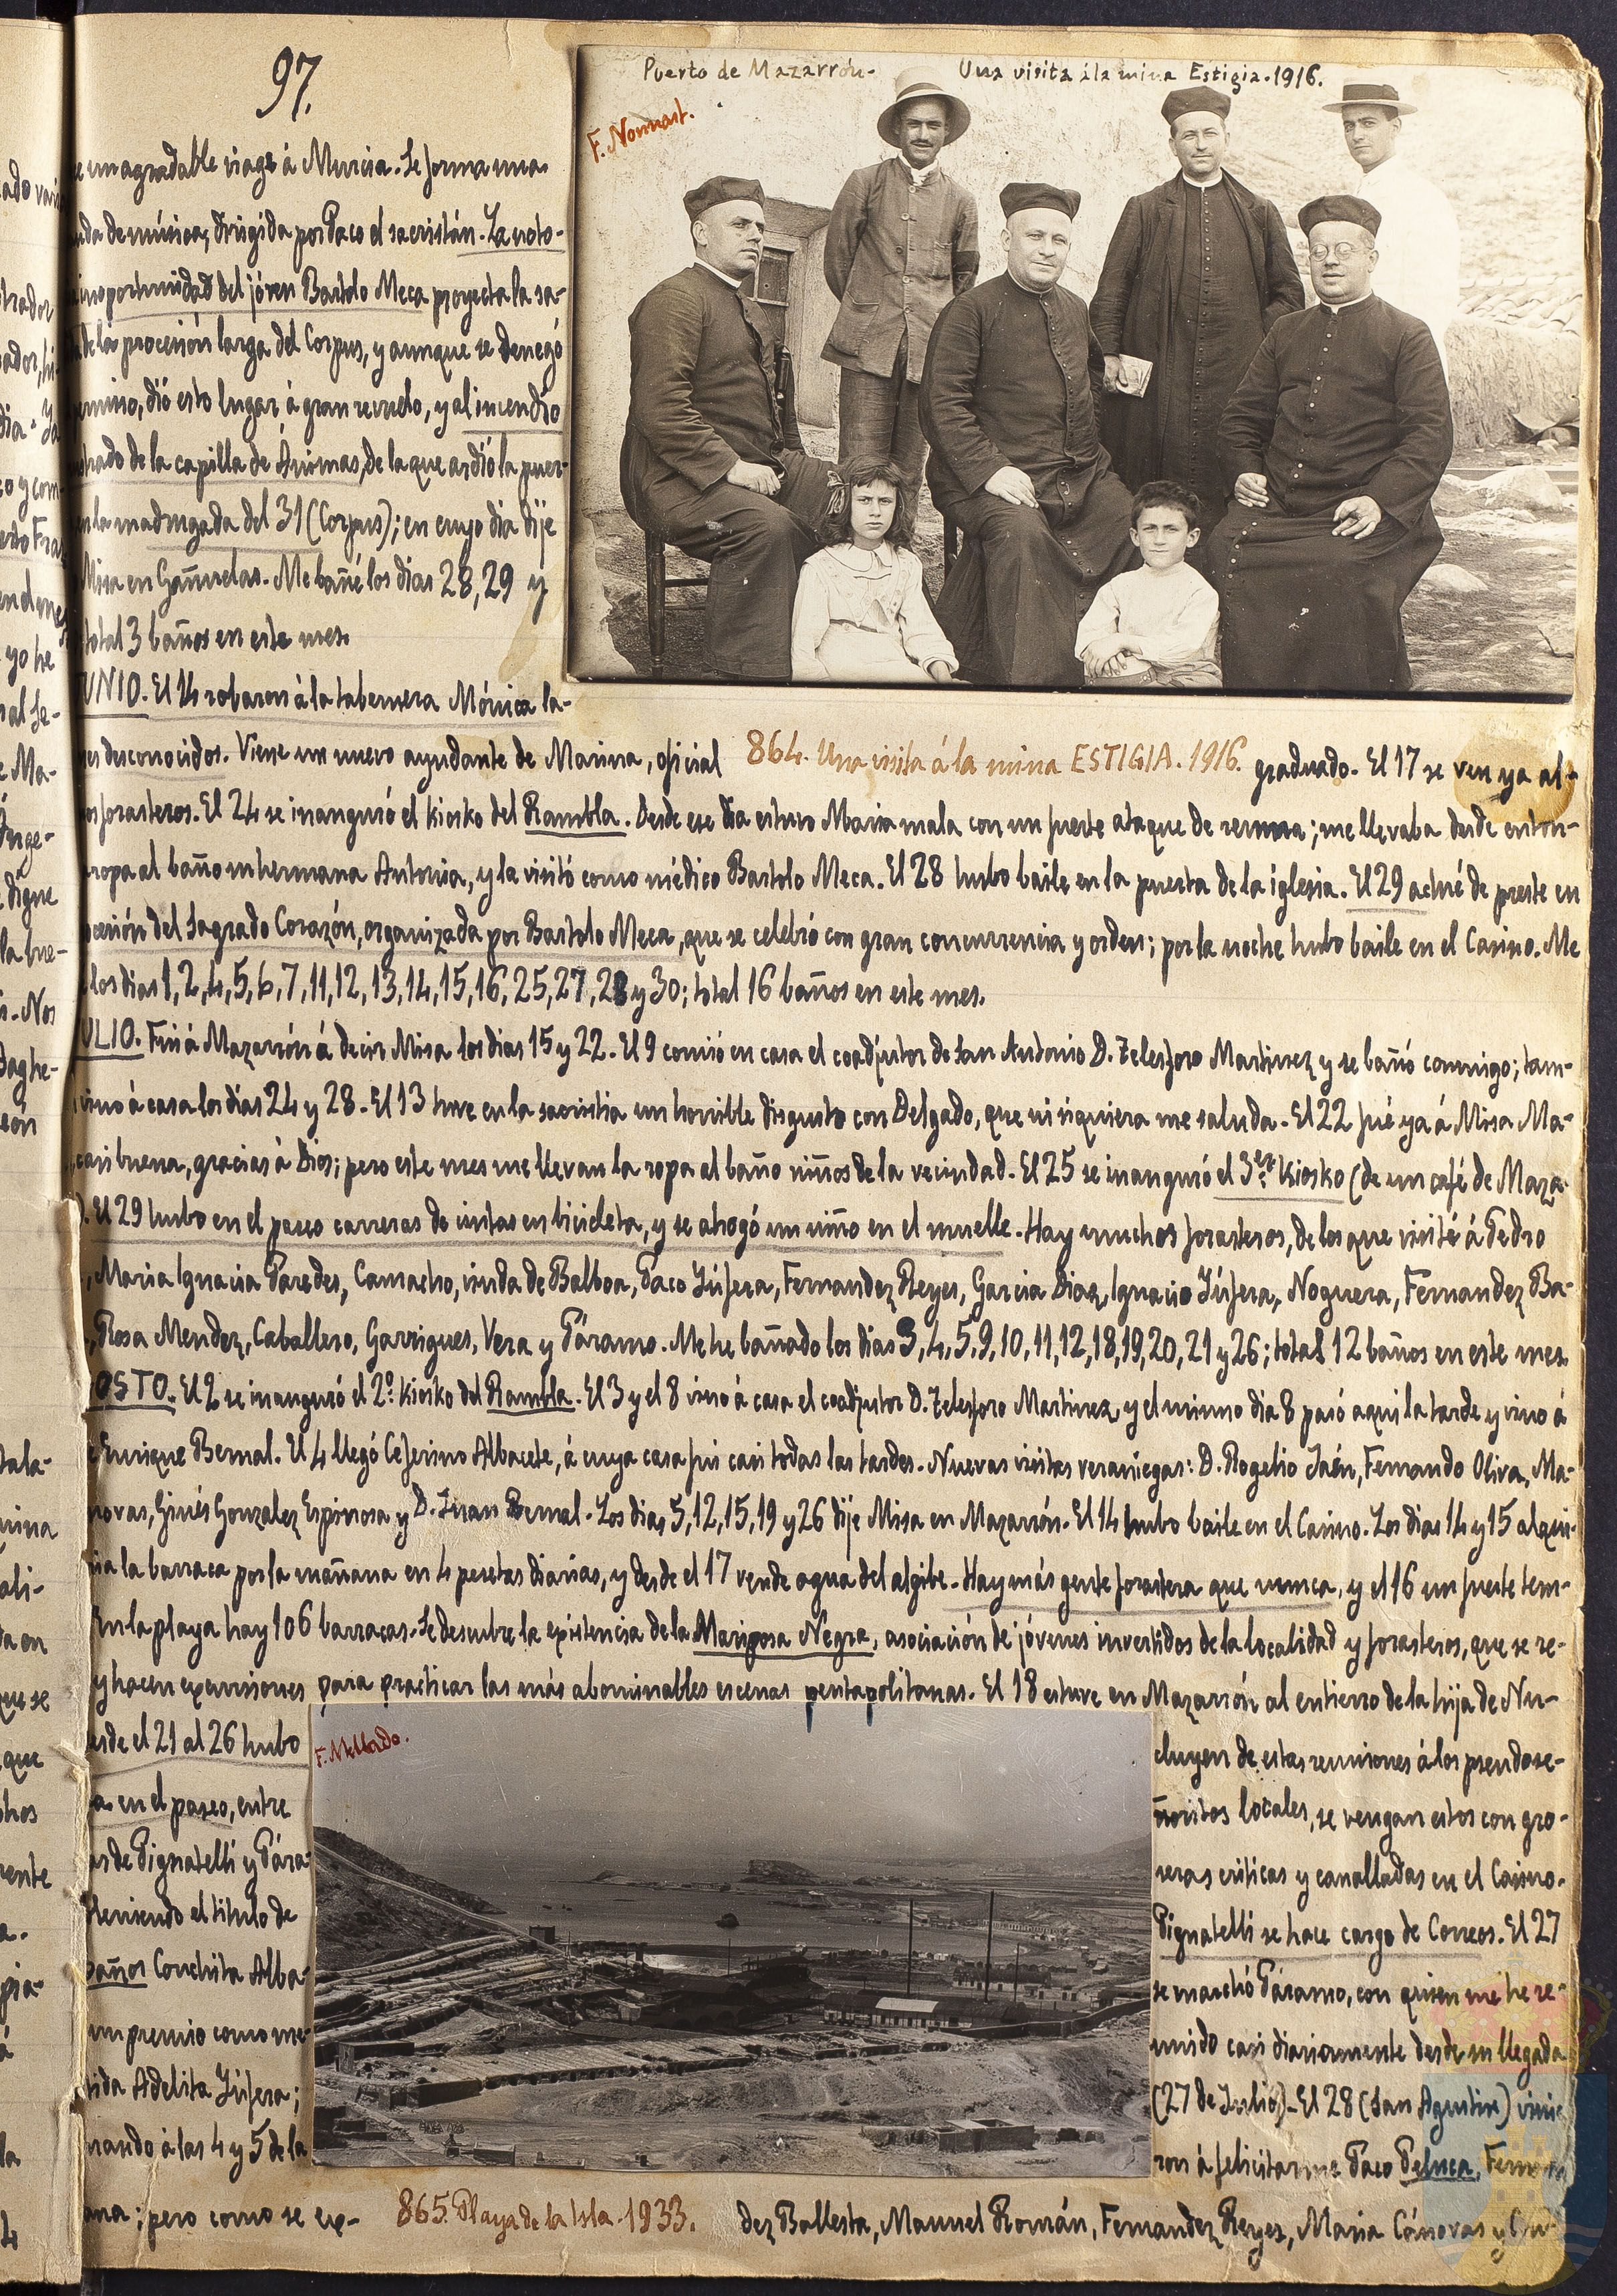 97.
Puerto de Mazarrón- Una visita á la mina Estigia. 1916.
F. Nomast.
e un agradable viage á Murcia. Se forma una
da de música, dirigida por Paco el sacristán. La noto-
inoportunidad del jóven Bartolo Meca proyecta la sa-
de la procesión larga del Corpus, y aunque se denegó
ermiso, dió esto lugar á gran revuelo, y al incendio
de la capilla de Ánimas, de la que ardió la puer-
n la madrugada del 31 (Corpus); en cuyo dia dije
Misa en Gañuelas. Me bañé los dias 28, 29 y
total 3 baños en este mes.
UNIO. El 14 robaron á la tabernera Mónica la-
es desconocidos. Viene un nuevo ayudante de Marina, oficial
864. Una visita á la mina ESTIGIA. 1916.
graduado. El 17 se ven ya al-
os forasteros. El 24 se inauguró el kiosko del Rambla. Desde ese dia estuvo Maria mala con un fuerte ataque de reuma; me llevaba desde enton-
ropa al baño mi hermana Antonia, y la visitó como médico Bartolo Meca. El 28 hubo baile en la puerta de la iglesia. El 29 actué de preste en
cesión del Sagrado Corazón, organizada por Bartolo Meca, que se celebró con gran concurrencia y orden; por la noche hubo baile en el Casino. Me
los dias 1, 2, 4, 5, 6, 7, 11, 12, 13, 14, 15, 16, 25, 27, 28 y 30; total 16 baños en este mes.
ULIO. Fuí á Mazarrón á decir Misa los dias 15 y 22. El 9 comió en casa el coadjutor de San Antonio D. Telesforo Martinez y se bañó conmigo; tam-
vino á casa los dias 24 y 28. El 13 tuve en la sacristia un horrible disgusto con Delgado, que ni siquiera me saluda. El 22 fué ya á Misa Ma-
casi buena, gracias á Dios; pero este mes me llevan la ropa al baño niños de la vecindad. El 25 se inauguró el 3er. kiosko (de un café de Maza-
). El 29 hubo en el paseo carreras de cintas en bicicleta, y se ahogó un niño en el muelle. Hay muchos forasteros, de los que visité á Pedro
, Maria Ignacia Paredes, Camacho, viuda de Balboa, Paco Yúfera, Fernandez Reyes, Garcia Diaz, Ignacio Yúfera, Noguera, Fernandez Ba-
, Rosa Mendez, Caballero, Garrigues, Vera y Páramo. Me he bañado los dias 3, 4, 5, 9, 10, 11, 12, 18, 19, 20, 21 y 26; total 12 baños en este mes.
OSTO. El 2 se inauguró el 2º kiosko del Rambla. El 3 y el 8 vino á casa el coadjutor D. Telesforo Martinez, y el mismo dia 8 pasó aqui la tarde y vino á
Enrique Bernal. El 4 llegó Ceferino Albacete, á cuya casa fuí casi todas las tardes. Nuevas visitas veraniegas: D. Rogelio Jaén, Fernando Oliva, Ma-
novas, Ginés Gonzalez Espinosa y D. Juan Bernal. Los dias 5, 12, 15, 19 y 26 dije Misa en Mazarrón. El 14 hubo baile en el Casino. Los dias 14 y 15 alqui-
ia la barraca por la mañana en 4 pesetas diarias, y desde el 17 vende agua del algibe. Hay más gente forastera que nunca, y el 16 un fuerte tem-
En la playa hay 106 barracas. Se descubre la existencia de la Mariposa Negra, asociación de jóvenes invertidos de la localidad y forasteros, que se re-
y hacen excursiones para practicar las más abominables escenas pentapolitanas. El 18 estuve en Mazarrón al entierro de la hija de Nu-
esde el 21 al 26 hubo
a en el paseo, entre
as de Pignatelli y Pára-
teniendo el titulo de
baños Conchita Alba-
un premio como me-
tida Adelita Yúfera;
nando á las 4 y 5 de la
ana; pero como se ex-
F. Mellado.
865. Playa de la Isla. 1933.
cluyen de estas reuniones á los pseudose-
ñoritos locales, se vengan estos con gro-
seras criticas y canalladas en el Casino.
Pignatelli se hace cargo de Correos. El 27
se marchó Páramo, con quien me he re-
unido casi diariamente desde su llegada
(27 de Julio). El 28 (San Agustin) vinie-
ron á felicitarme Paco Peluca, Fernan-
dez Ballesta, Manuel Román, Fernandez Reyes, Maria Cánovas y